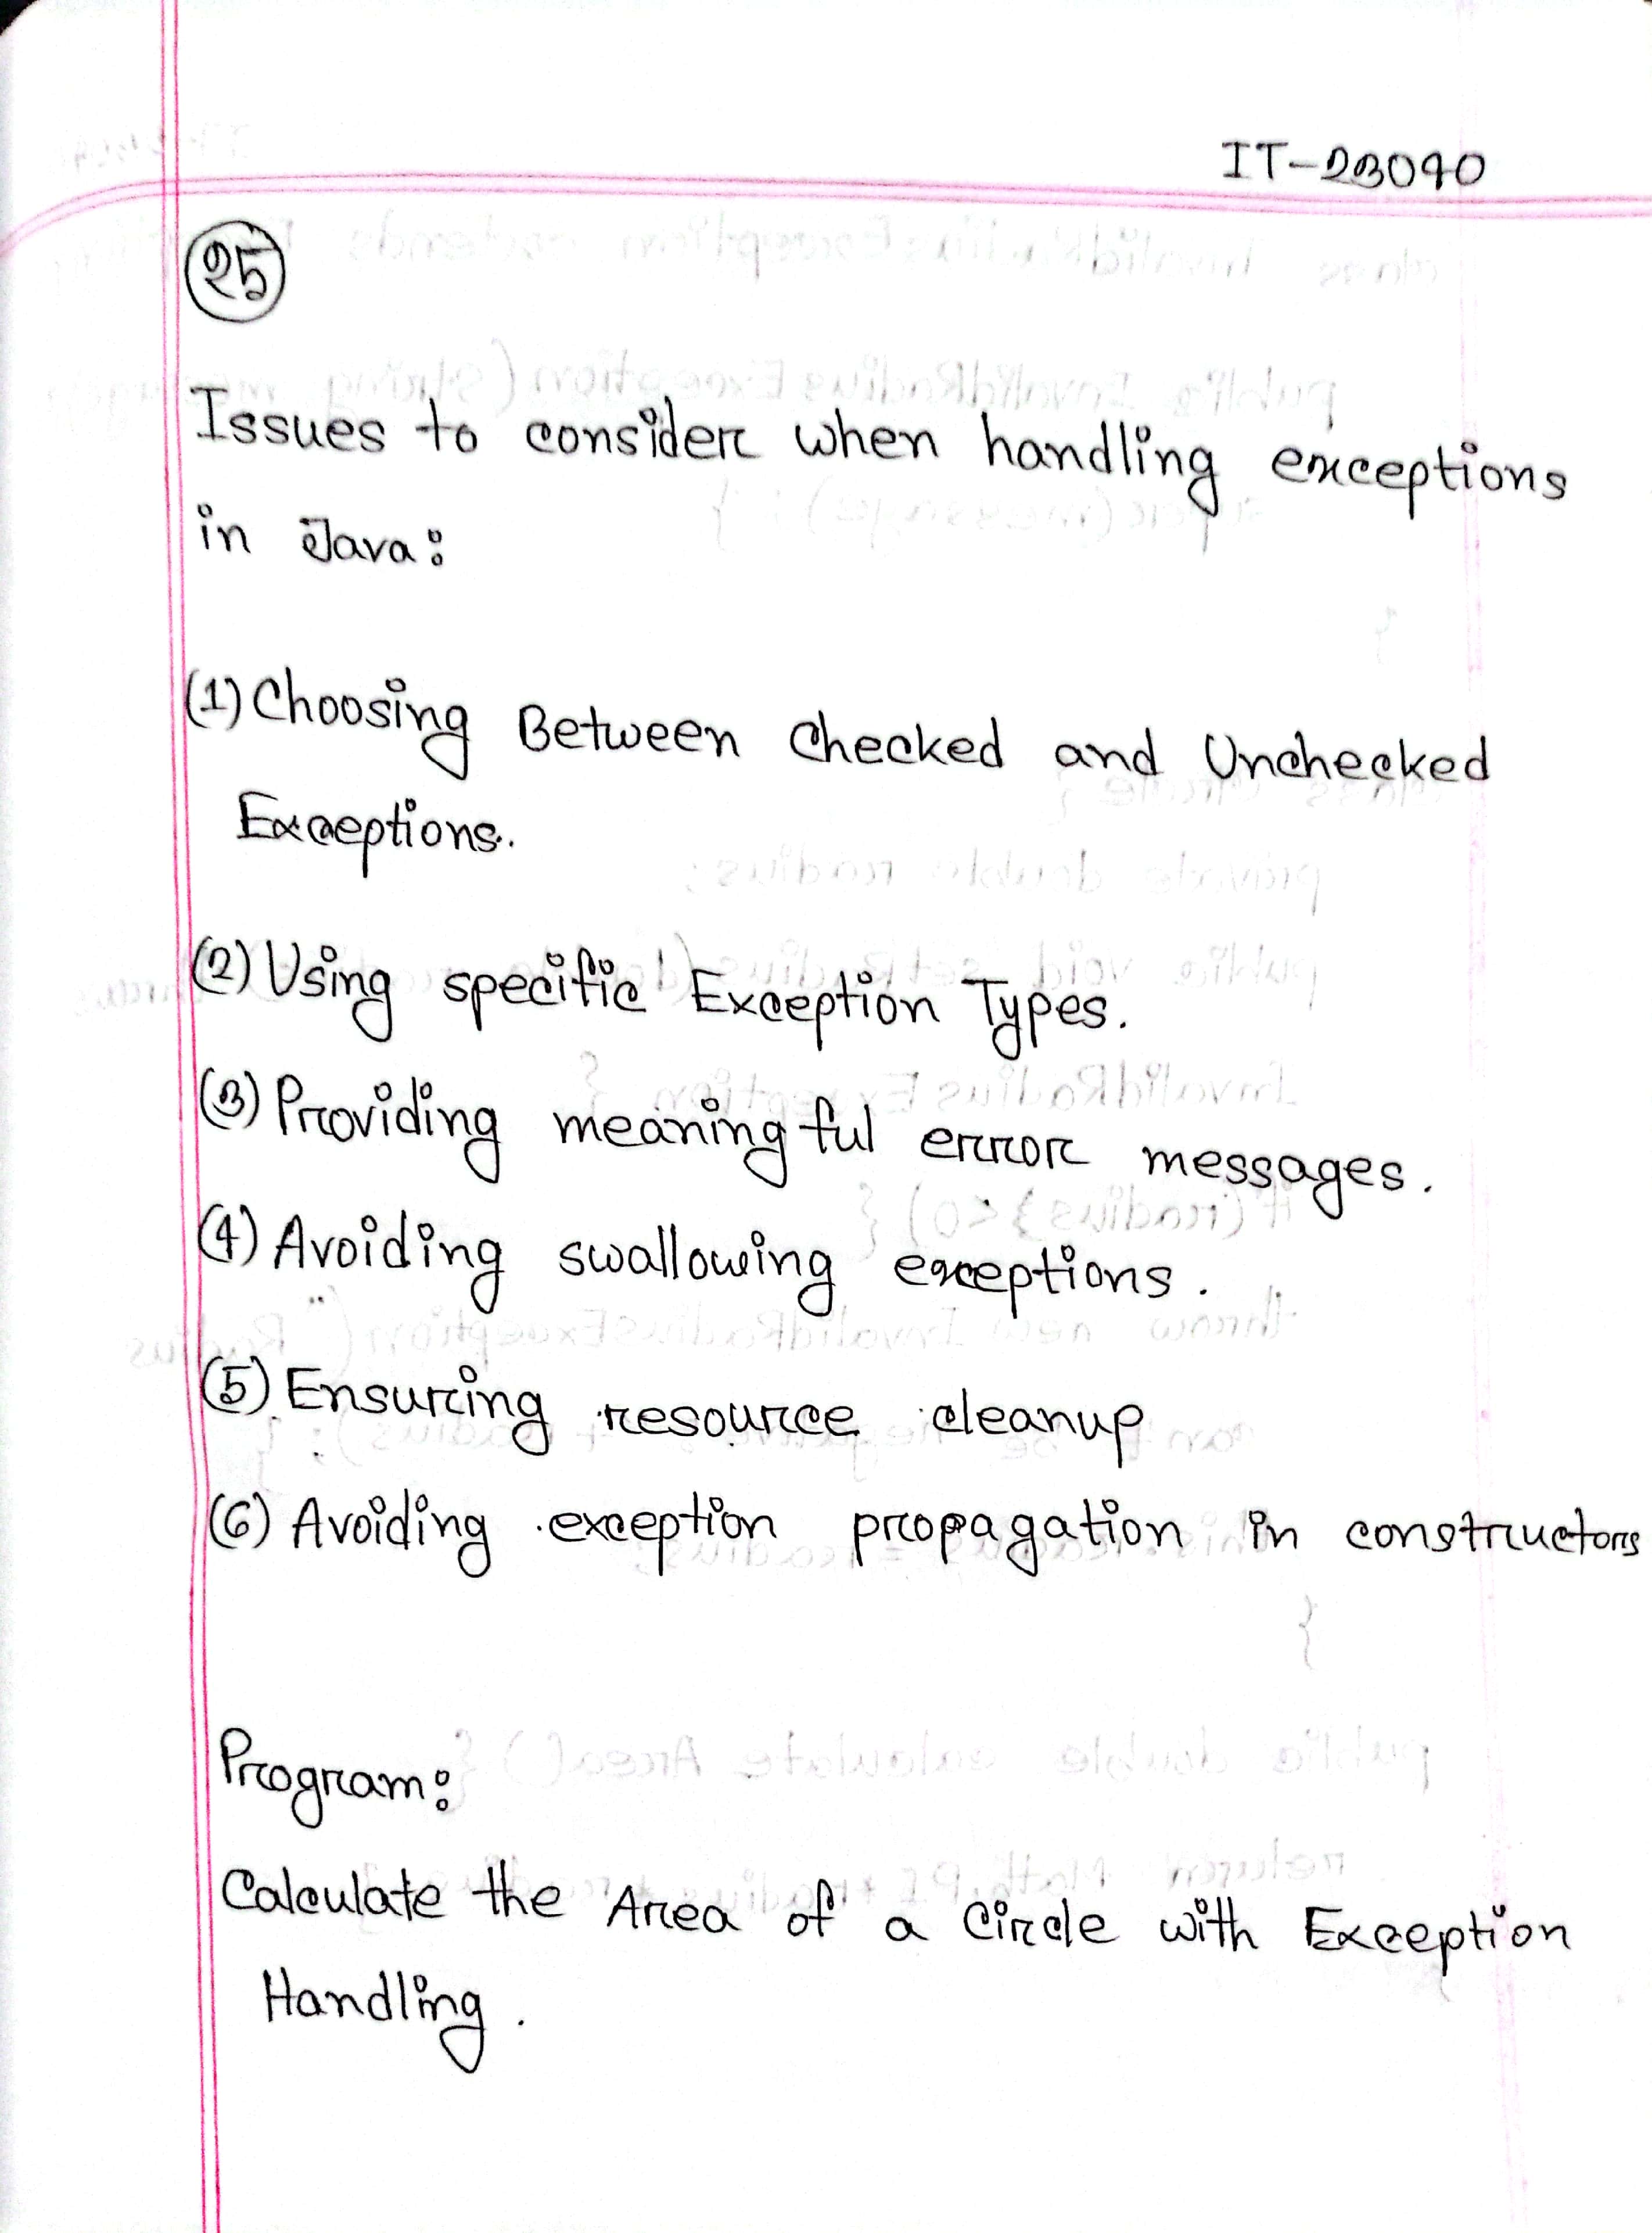 IT-23090
25
Issues to consider when handling exceptions
in Java:
(1) Choosing Between Checked and Unchecked
Exceptions.
(2) Using specific Exception Types.
(3) Providing meaningful error messages.
(4) Avoiding swallowing exceptions.
(5) Ensuring resource cleanup
(6) Avoiding exception propagation in constructors
Program:
Calculate the Area of a Circle with Exception
Handling.